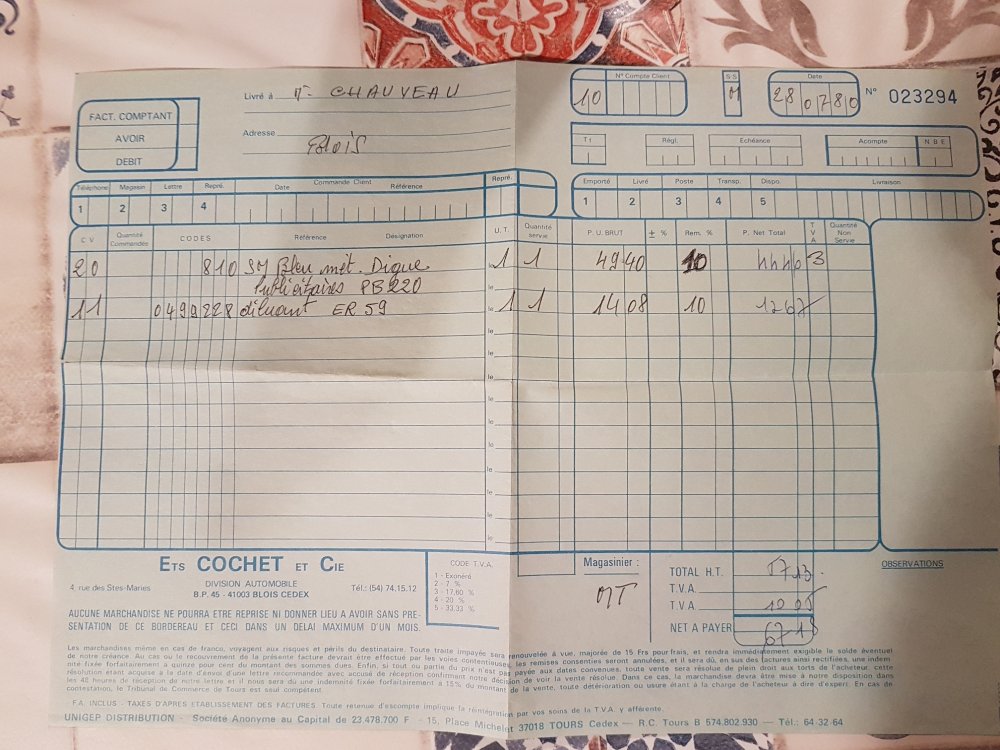 Livré à Mr CHAUVEAU
Adresse Blois
FACT. COMPTANT
AVOIR
DEBIT
N° Compte Client
10
S S
M
Date
28 07 80
N° 023294
T1
Régl.
Echéance
Acompte
N B E
Téléphone Magasin Lettre Repré. Date Commande Client Référence Repré.
1 2 3 4
Emporté Livré Poste Transp. Dispo. Livraison
1 2 3 4 5
C V Quantité Commandée CODES Référence Désignation U. T. Quantité servie P. U. BRUT ± % Rem. % P. Net Total T V A Quantité Non Servie
20 810 Bleu mét. le 1 1 49 40 10 44 46 3
Publicitaires PB 220
11 0499228 diluant ER 59 le 1 1 14 08 10 12 67
le
le
le
le
le
le
le
le
le
le
le
ETS COCHET ET CIE
4 rue des Stes-Maries DIVISION AUTOMOBILE Tél.: (54) 74.15.12
B.P. 45 - 41003 BLOIS CEDEX
AUCUNE MARCHANDISE NE POURRA ETRE REPRISE NI DONNER LIEU A AVOIR SANS PRE-
SENTATION DE CE BORDEREAU ET CECI DANS UN DELAI MAXIMUM D'UN MOIS.
CODE T.V.A.
1 - Exonéré
2 - 7 %
3 - 17,60 %
4 - 20 %
5 - 33,33 %
Magasinier :
TOTAL H.T. 57 13
T.V.A.
T.V.A. 10 05
NET A PAYER 67 18
OBSERVATIONS
Les marchandises même en cas de franco, voyagent aux risques et périls du destinataire. Toute traite impayée sera renouvelée à vue, majorée de 15 Frs pour frais, et rendra immédiatement exigible le solde éventuel
de notre créance. Au cas où le recouvrement de la présente facture devrait être effectué par les voies contentieuses, les remises consenties seront annulées, et il sera dû, en sus des factures ainsi rectifiées, une indem
nité fixée forfaitairement à quinze pour cent du montant des sommes dues. Enfin, si tout ou partie du prix n'est pas payée aux dates convenues, toute vente sera résolue de plein droit aux torts de l'acheteur, cette
résolution étant acquise à la date d'envoi d'une lettre recommandée avec accusé de réception confirmant notre décision de voir la vente résolue. Dans ce cas, la marchandise devra être mise à notre disposition dans
les 48 heures de réception de notre lettre et il nous sera dû une indemnité fixée forfaitairement à 15% du montant de la vente, toute détérioration ou usure étant à la charge de l'acheteur à dire d'expert. En cas de
contestation, le Tribunal de Commerce de Tours est seul compétent.
F.A. INCLUS - TAXES D'APRES ETABLISSEMENT DES FACTURES. Toute retenue d'escompte implique la réintégration par vos soins de la T.V.A. y afférente.
UNIGEP DISTRIBUTION - Société Anonyme au Capital de 23.478.700 F - 15, Place Michelet 37018 TOURS Cedex — R.C. Tours B 574.802.930 — Tél.: 64-32-64